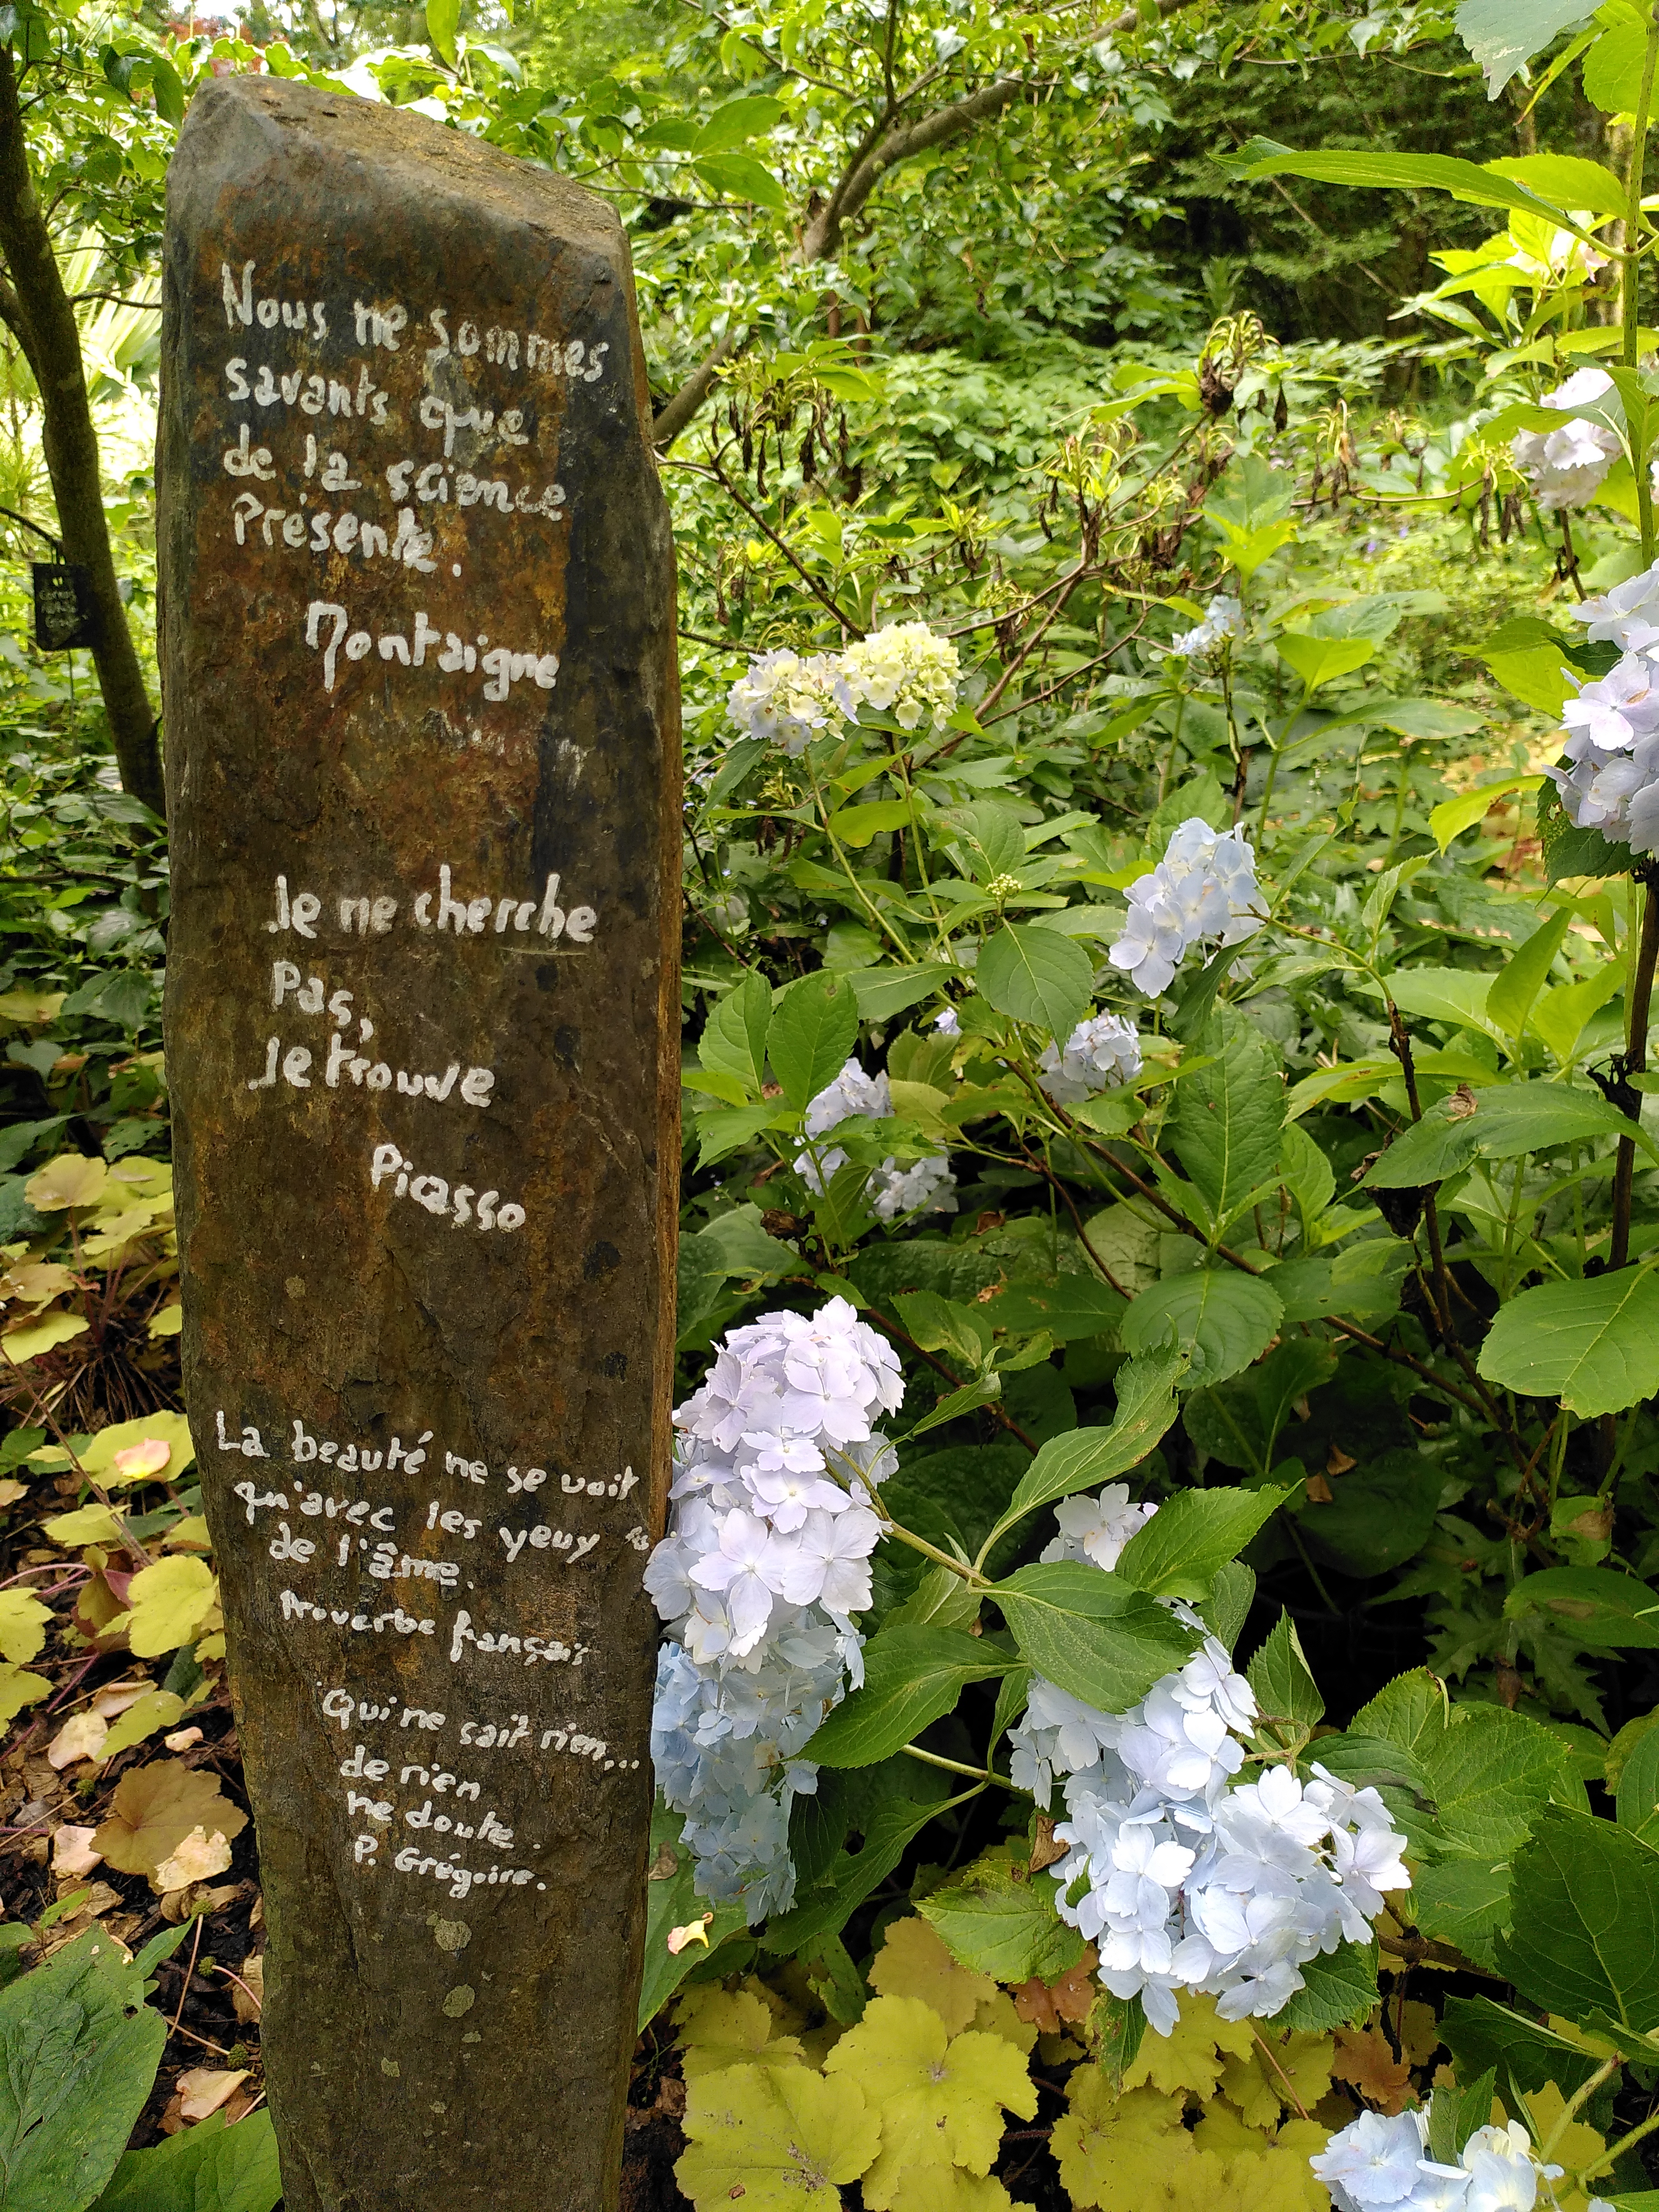 Nous ne sommes
savants que
de la science
Présente.
Montaigne
Je ne cherche
Pas,
Je trouve
Picasso
La beauté ne se voit
qu'avec les yeux
de l'âme.
Proverbe français
Qui ne sait rien...
de rien
ne doute.
P. Grégoire.